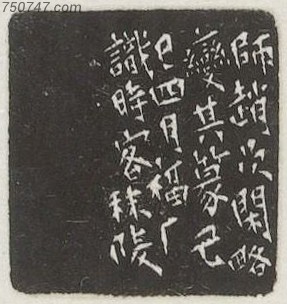 750747.com
師趙次閑略
變其篆己
巳四月福厂
識時客秣陵